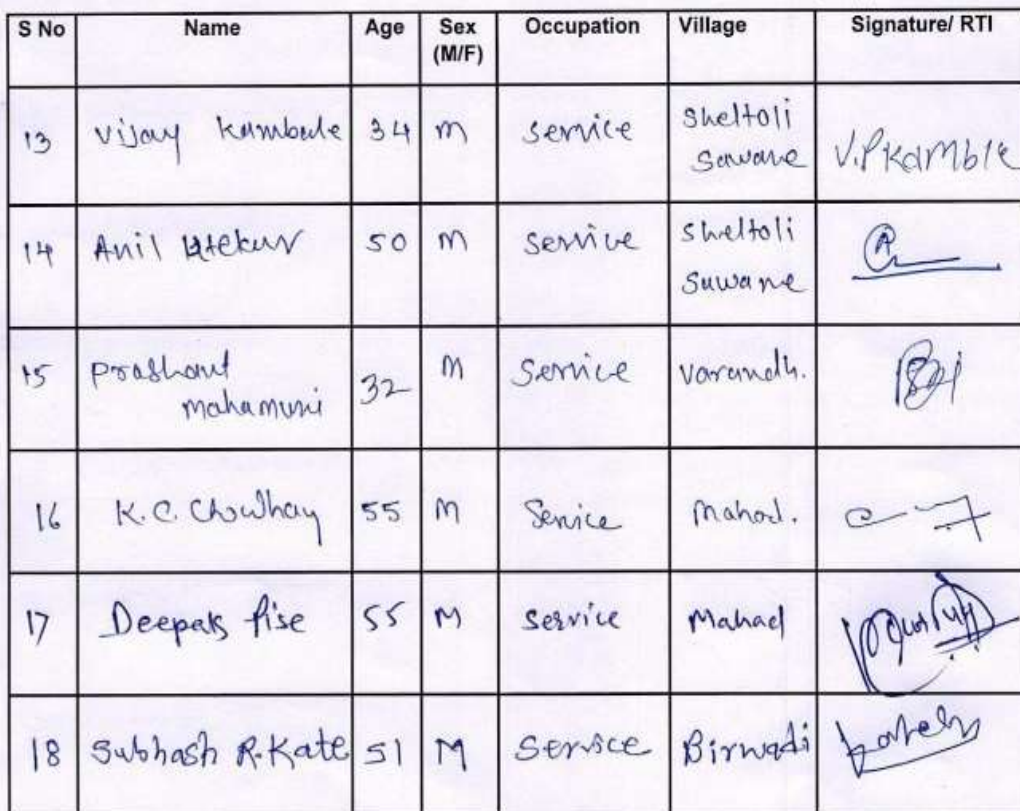 S No Name Age Sex (M/F) Occupation Village Signature/ RTI
13 Vijay Kambale 34 M Service Sheltoli
Sawane V.P Kamble
14 Anil 50 M Service Sheltoli
Suwane
15 Prashant
mahamuni 32 M Service Varandh.
16 K.C. Chowhay 55 M Service Mahad.
17 Deepak Pise 55 M Service Mahad
18 Subhash R. Kate 51 M Service Birwadi